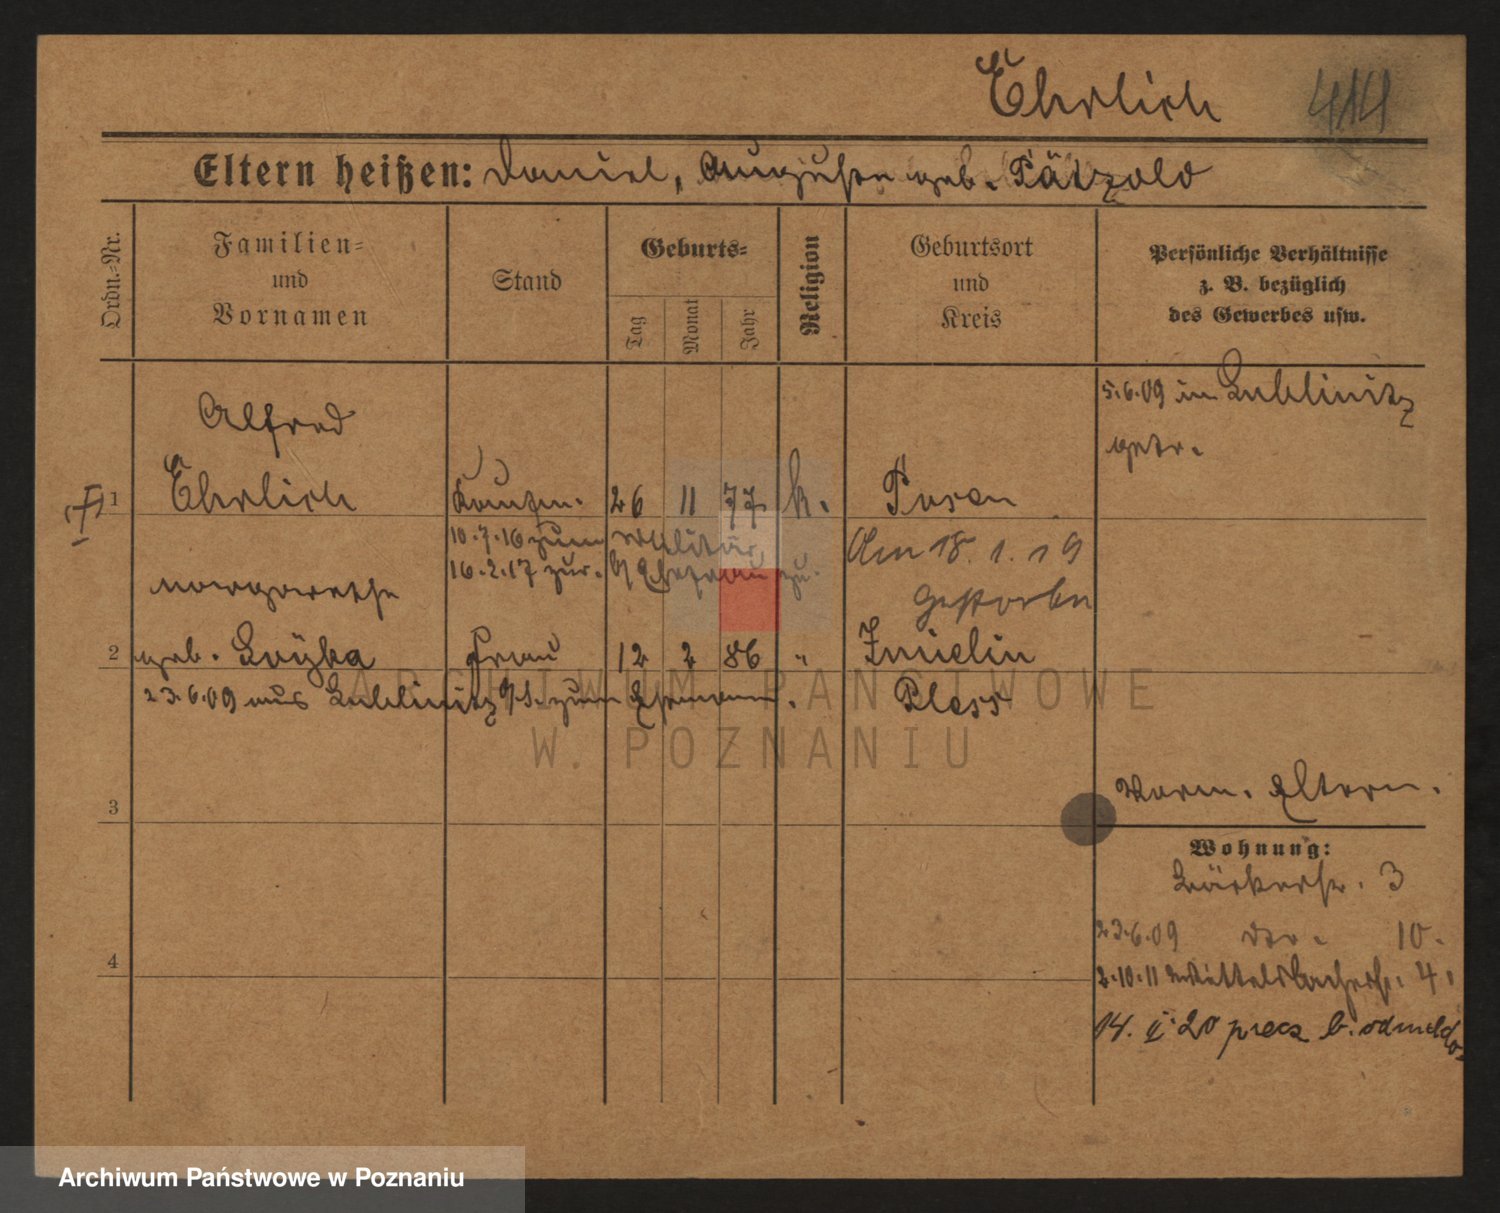 Ehrlich 414
Eltern heißen: Daniel, Auguste geb. Pätzold
Ordn.-Nr.
Familien-
und
Vornamen
Stand
Geburts-
Tag
Monat
Jahr
Religion
Geburtsort
und
Kreis
Persönliche Verhältnisse
z. B. bezüglich
des Gewerbes usw.
5.6.09 in Lublinitz
getr.
Alfred
1 Ehrlich Kaufm. 26 11 77 k. Posen
10.7.16 zum Militär
16.2.17 zur. Ehefrau zu
Am 18.1.19
gestorben
Margarethe
2 geb. Frau 12 2 86 " Imielin
23.6.09 aus Lublinitz zum Ehemann.
Pless
3
Verm. Eltern.
Wohnung:
Bäckerstr. 3
23.6.09 10.
4
2.10.11 Wittelsbacherstr. 4.
14. II 20 precz b. odmeldo
ARCHIWUM PAŃSTWOWE
W. POZNANIU
Archiwum Państwowe w Poznaniu